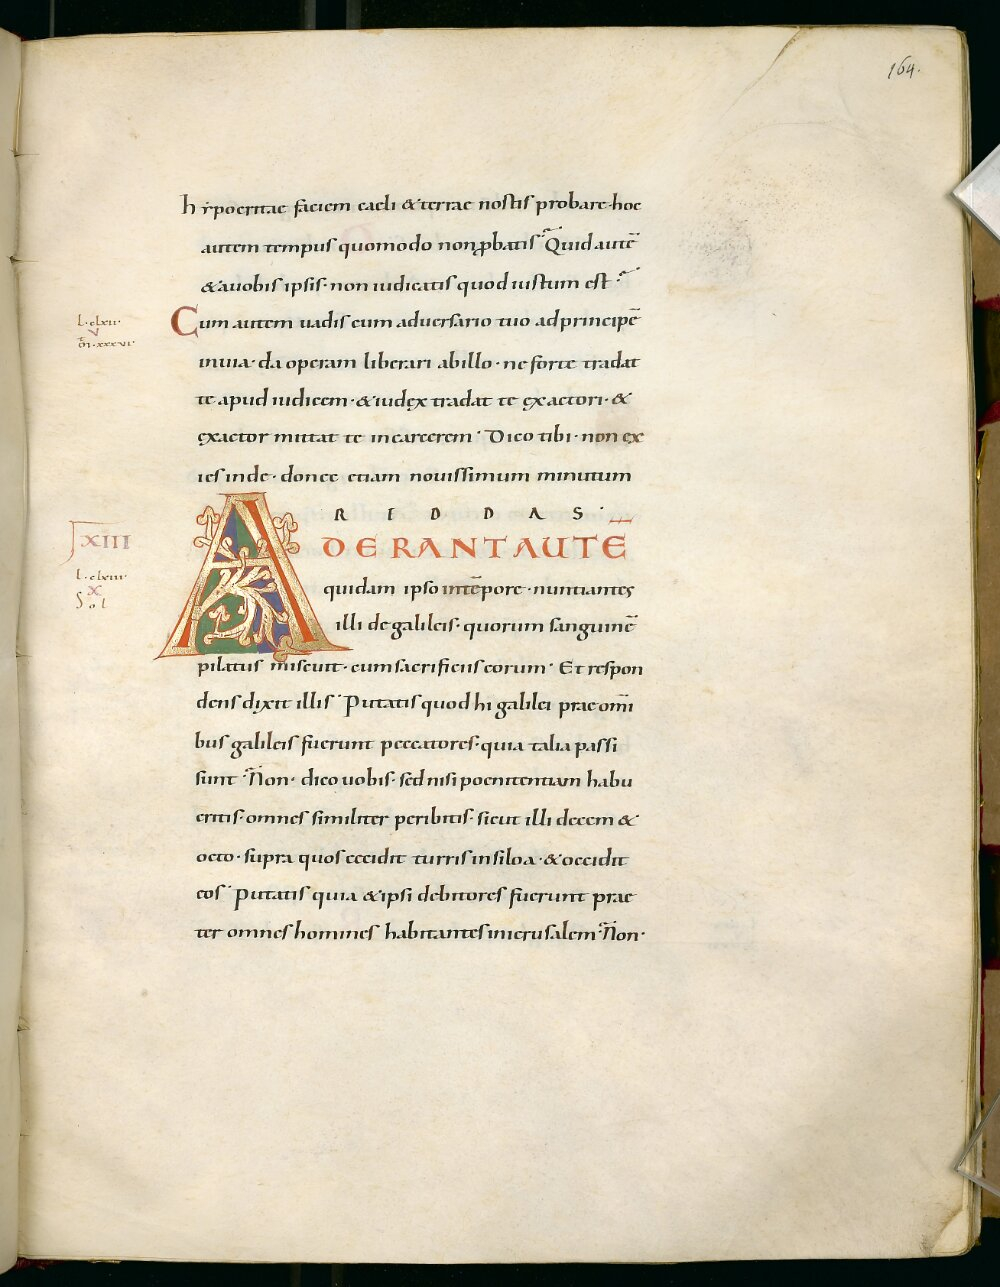 164.
hypocritae faciem caeli & terrae nostis probare hoc
autem tempus quomodo non ꝓbatis Quid autē
& a uobis ipsis· non iudicatis quod iustum est
l·clxii·
v
m̄·xxxvi·
Cum autem uadis cum aduersario tuo ad principē
in uia· da operam liberari ab illo· ne forte tradat
te apud iudicem· & iudęx tradat te ęxactori· &
ęxactor mittat te in carcerem· Dico tibi· non ęx
ies inde· donec etiam nouissimum minutum
REDDAS·
XIII
ADERANT AUTĒ
l·clxiii·
x
Sol
quidam ipso in tēpore· nuntiantes
illi de galileis· quorum sanguinē
pilatus miscuit· cum sacrificiis eorum· Et respon
dens dixit illis· Putatis quod hi galilei prae om̄i
bus galileis fuerunt peccatores· quia talia passi
sunt Non· dico uobis· sed nisi poenitentiam habu
eritis· omnes similiter peribitis· sicut illi decem &
octo· supra quos cecidit turris in siloa· & occidit
eos· Putatis quia & ipsi debitores fuerunt prae
ter omnes homines habitantes in ierusalem Non·